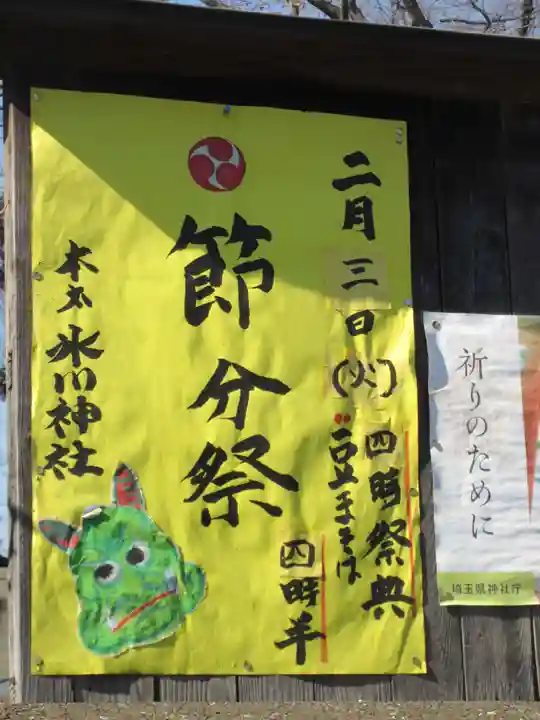 二月三日(火)
四時祭典
豆まきは
四時半
節分祭
本太氷川神社
祈りのために
埼玉県神社庁